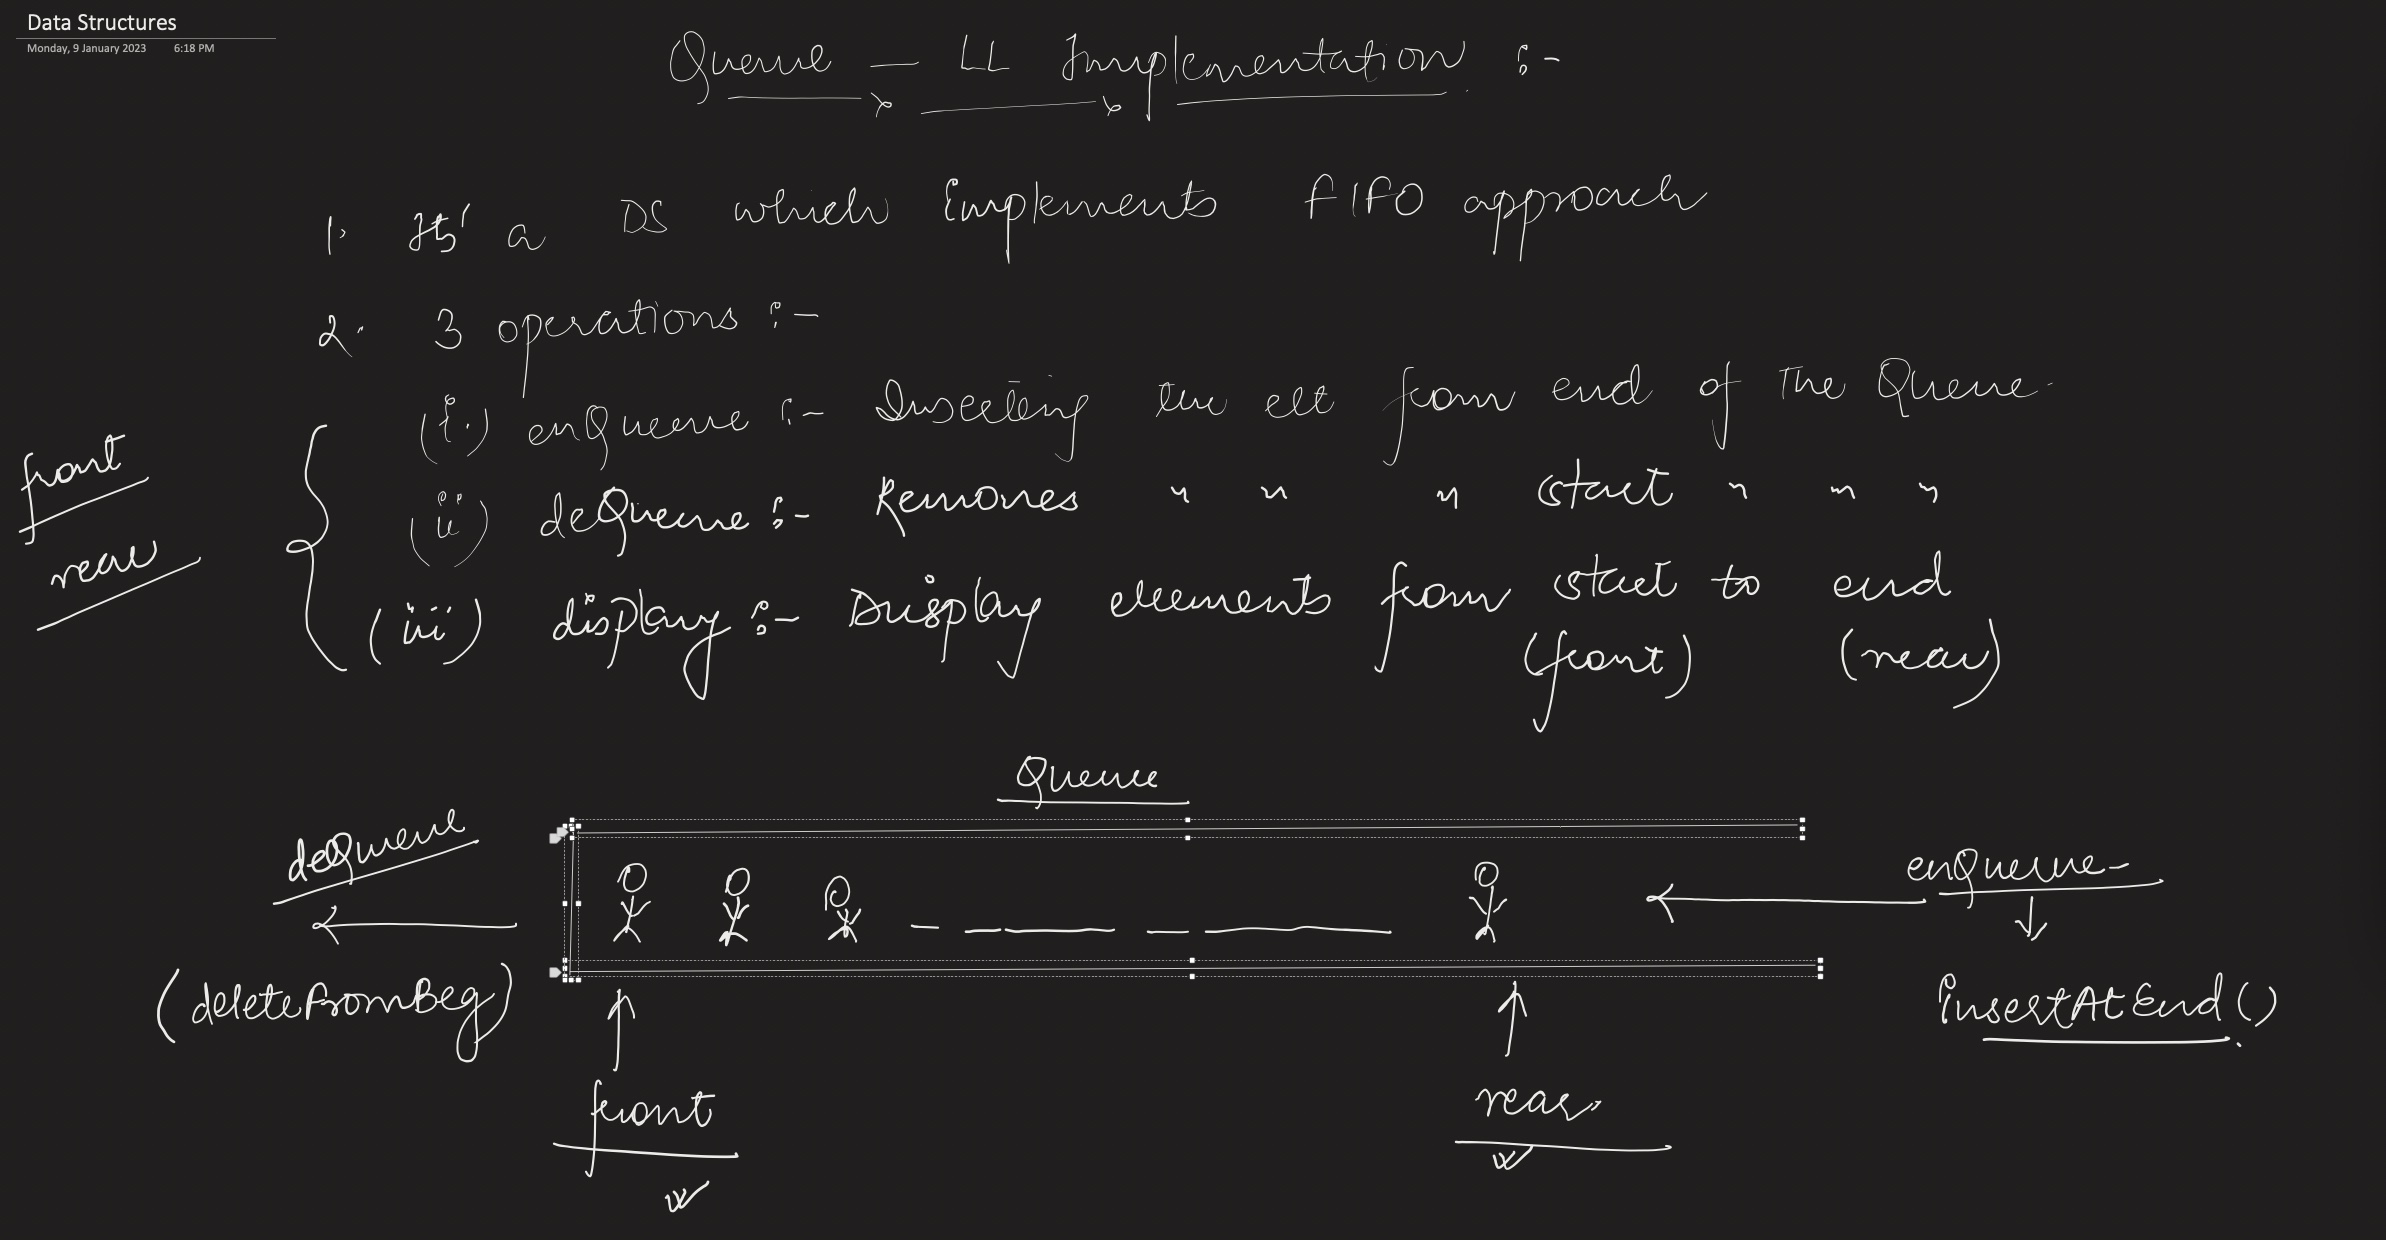 Data Structures
Monday, 9 January 2023 6:18 PM
Queue - LL Implementation :-
1. Its' a DS which implements FIFO approach
2. 3 operations :-
(i.) enQueue :- Inserting the elt from end of The Queue.
(ii) deQueue :- Removes " " " start " " "
(iii) display :- Display elements from start to end
(front) (rear)
front
rear
Queue
deQueue
enQueue-
(deleteFromBeg)
insertAtEnd().
front
rear